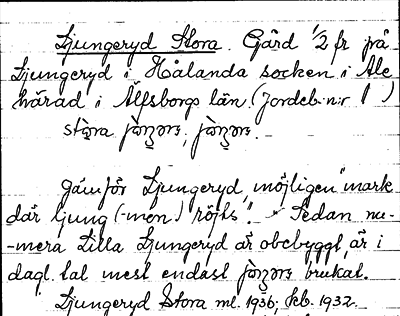 Ljungeryd Stora. Gård 1/2 fr på
Ljungeryd i Hålanda socken i Ale
härad i Älfsborgs län. (Jordeb. n:r 1)
stǫra
Jämför Ljungeryd, möjligen "mark
där ljung (-mon) röjts". - Sedan nu-
-mera Lilla Ljungeryd är obebyggt, är i
dagl. tal mest endast brukat.
Ljungeryd Stora ml. 1936; kb. 1932.